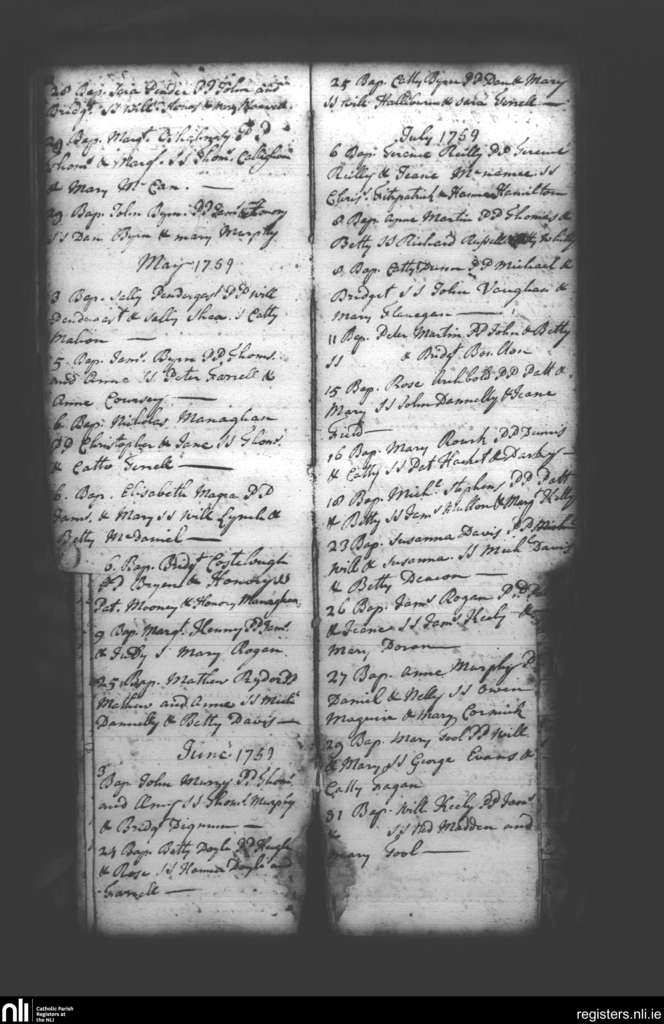 28 Bap. Sara PP John and
Bridgt. SS Willm.
29 Bap. Margt. PP
Thoms. & Margt. SS Thoms. Callaghan
& Mary McCan.
29 Bap. John Byrn PP Jams. & Honory
SS Dan Byrn & Mary Murphy
May 1759
3 Bap. Sally Pendergast PP Will
Pendergast & Sally Shea S Catty
Mahon
5 Bap. Jams. Byrn PP Thoms.
and Anne SS Peter Farrell &
Anne Coursey
6. Bap. Nicholas Managhan
PP Christopher & Jane SS Thoms.
& Catte
6. Bap. Elisabeth Magra PP
Jams. & Mary SS Will Lynch &
Betty McDaniel
6. Bap. Bridgt Costelough
PP Bryan & Honory SS
Pat. Mooney & Honory Managhan
9 Bap. Margt. PP Jams.
& Judy S Mary Rogan
25 Bap. Mathew
Mathew and Anne SS Michl
Dannelly & Betty Davis
June 1759
3
Bap John Murry PP Thoms.
and Amy SS Thoms. Murphy
& Bridgt Dignum
24 Bap. Betty Doyle PP Hugh
& Rose SS Doyle and
Farrell
25 Bap. Catty Byrn PP Dan & Mary
SS Will & Sara
July 1759
6 Bap. Terence Reilly PP Terence
Reilly & Jeane McNamee SS
Chrisr. Fitzpatrick & Hanna Hamilton
8 Bap. Anne Martin PP Thomas &
Betty SS Richard Russell
8. Bap. Catty PP Michael &
Bridget SS John Vaughan &
Mary Flanegan
11 Bap. Peter Martin PP John & Betty
SS & Bridgt
15 Bap. Rose Archbold PP Patt &
Mary SS John Dannelly & Jeane
Field
16 Bap. Mary Rourk PP Dennis
& Catty SS Pat Hacket & Darby
18 Bap. Michl. Stephens PP Patt
& Betty SS Jams & Margt Kelly
23 Bap. Susanna Davis PP
Will & Susanna SS Michl Davis
& Betty Deacon
26 Bap. Jams Rogan PP
& Jeane SS Jams Keely &
Mary Doran
27 Bap. Anne Murphy P
Daniel & Nelly SS Owen
Maguire & Mary Cormick
29 Bap. Mary Tool PP Will
& Mary SS George Evans &
Catty Fagan
31 Bap. Will Keely PP Jams.
& SS Madden and
Mary Tool
nli
Catholic Parish
Registers at
the NLI
registers.nli.ie